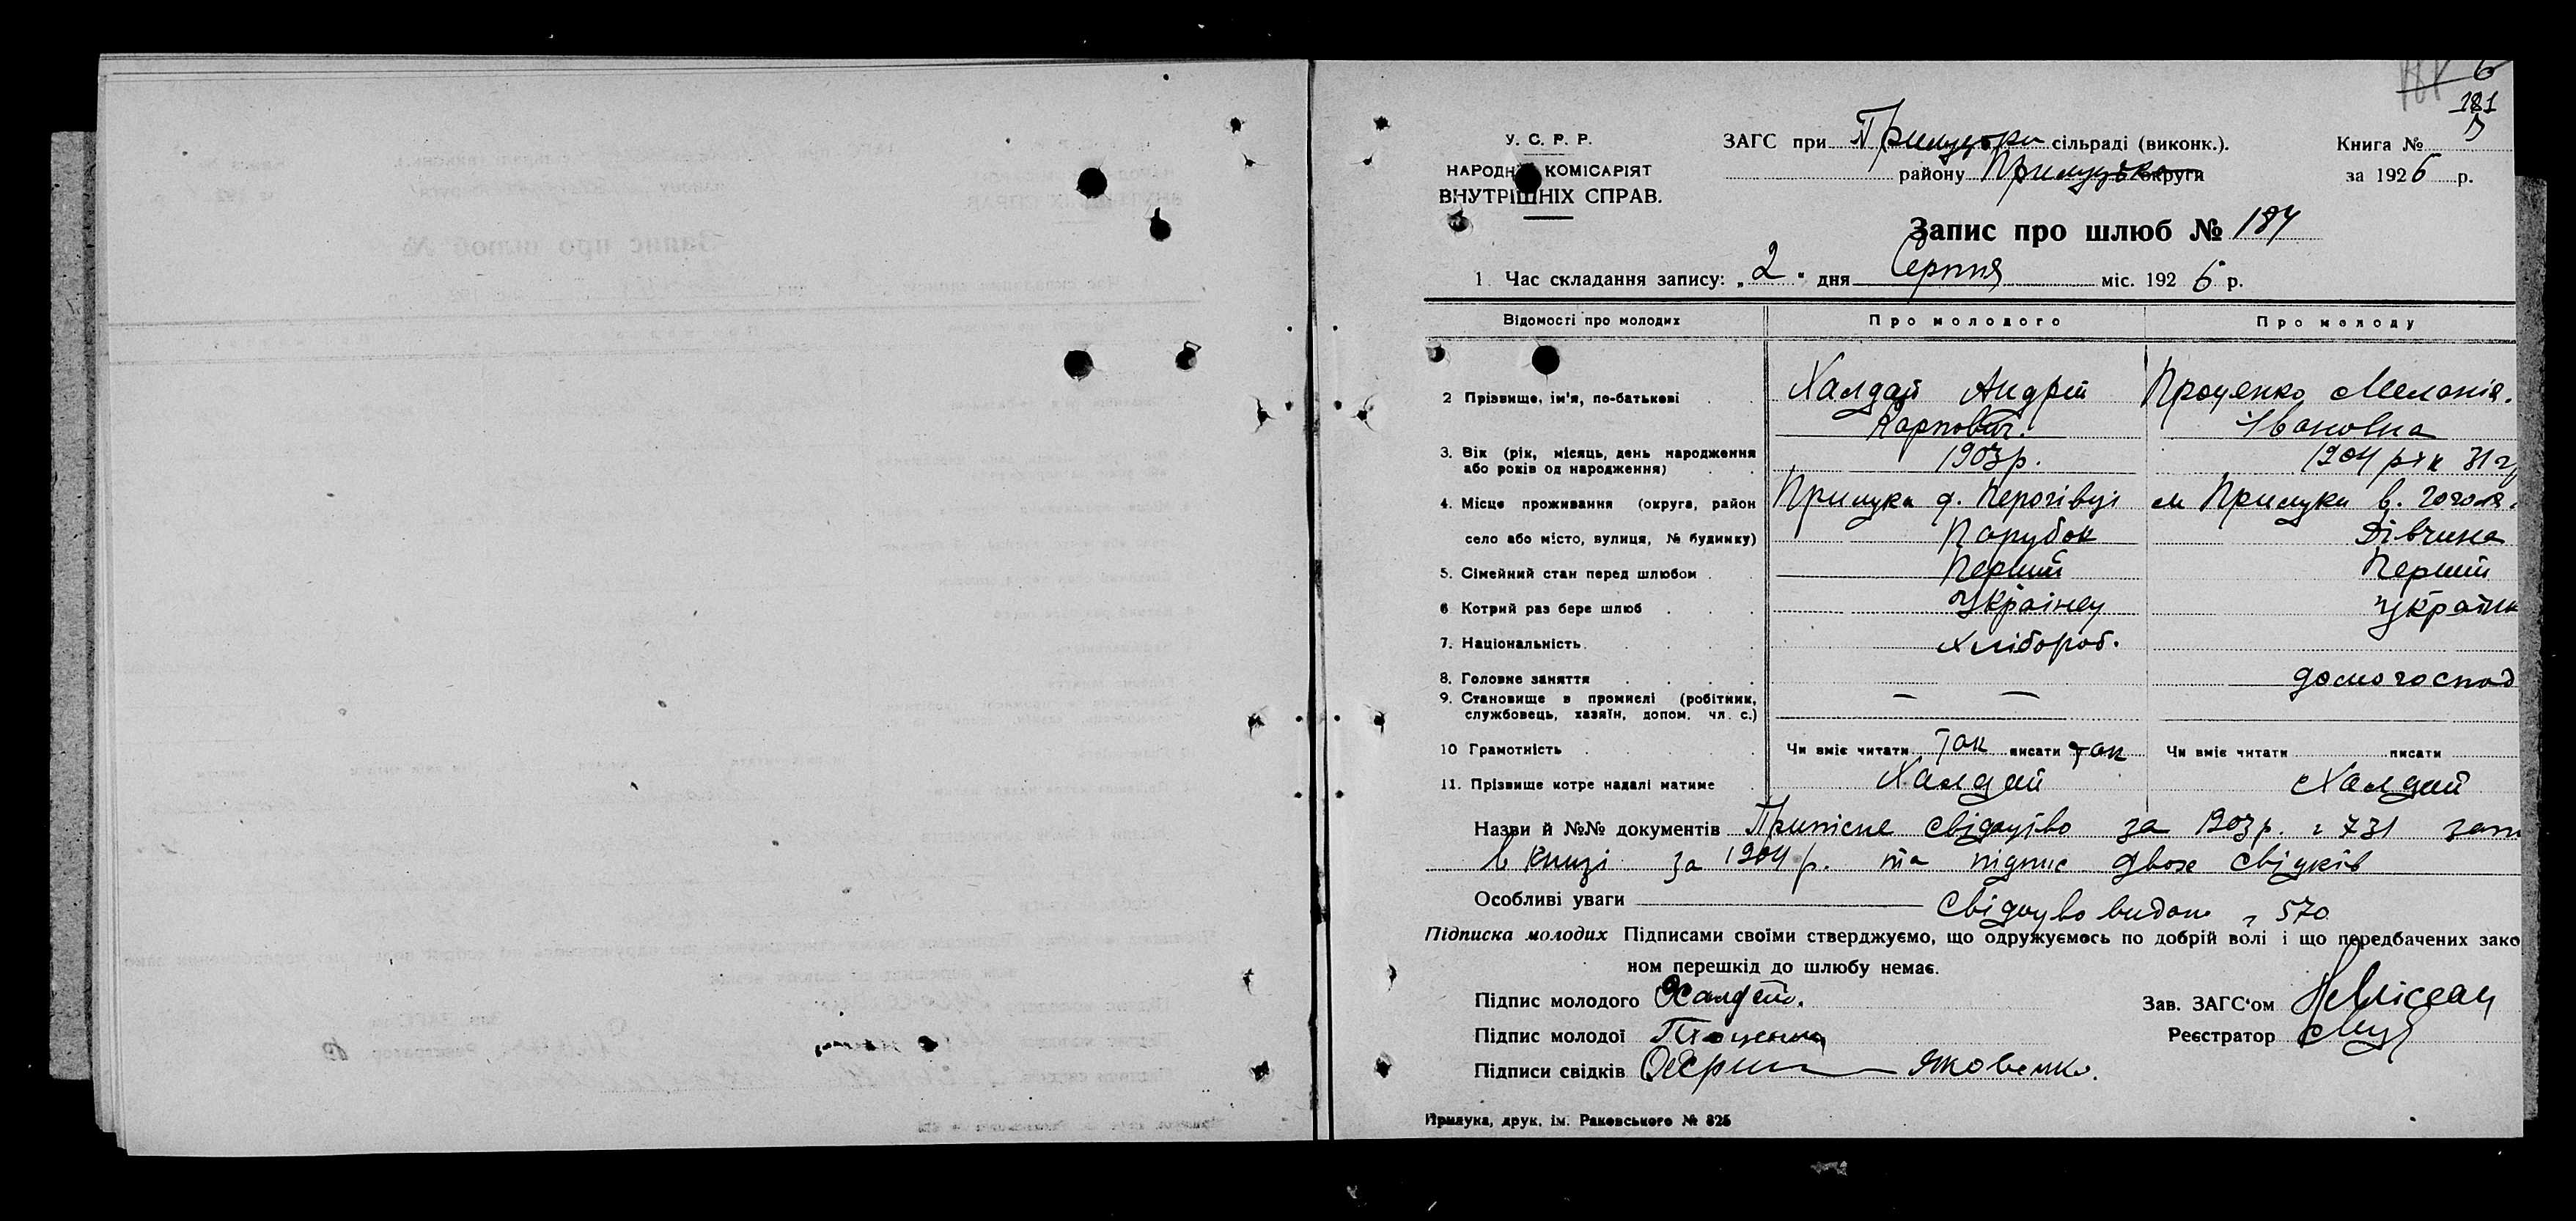 6
181
У. С. Р. Р.
ЗАГС при Прилуцькі сільраді (виконк.).
Книга № 5
НАРОДНІЙ КОМІСАРІЯТ
району Прилуцька округи
за 1926 р.
ВНУТРІШНІХ СПРАВ.
Запис про шлюб № 184
1. Час складання запису: „2" дня Серпня міс. 1926 р.
Відомості про молодих
Про молодого
Про молоду
2 Прізвище, ім'я, по-батькові
Халдай Андрій
Проценко Меланія.
Карпович.
Івановна
3. Вік (рік, місяць, день народження
або років од народження)
1903р.
1904 рік 31
4. Місце проживання (округа, район
Прилука
м Прилуки в. Гоголя.
село або місто, вулиця, № будинку)
Парубок
Дівчина
5. Сімейний стан перед шлюбом
Перший
Перший
6 Котрий раз бере шлюб
Українец
Українк
7. Національність
Хлібороб.
8. Головне заняття
домогоспод
9. Становище в промислі (робітник,
— —
службовець, хазяїн, допом. чл. с.)
10 Грамотність
Чи вміє читати так писати так
Чи вміє читати писати
11. Прізвище котре надалі матиме
Халдай
Халдай
Назви й №№ документів Приписне свідоцтво за 1903р. 731 зап
в книзі за 1904 р. та підпис двох свідків
Особливі уваги
Свідоцтво видано 570
Підписка молодих Підписами своїми стверджуємо, що одружуємось по добрій волі і що передбачених зако
ном перешкід до шлюбу немає.
Підпис молодого Халдай.
Зав. ЗАГС'ом
Підпис молодої Проценко
Реєстратор
Підписи свідків Яковенко.
Прилука, друк. ім. Раковського № 825